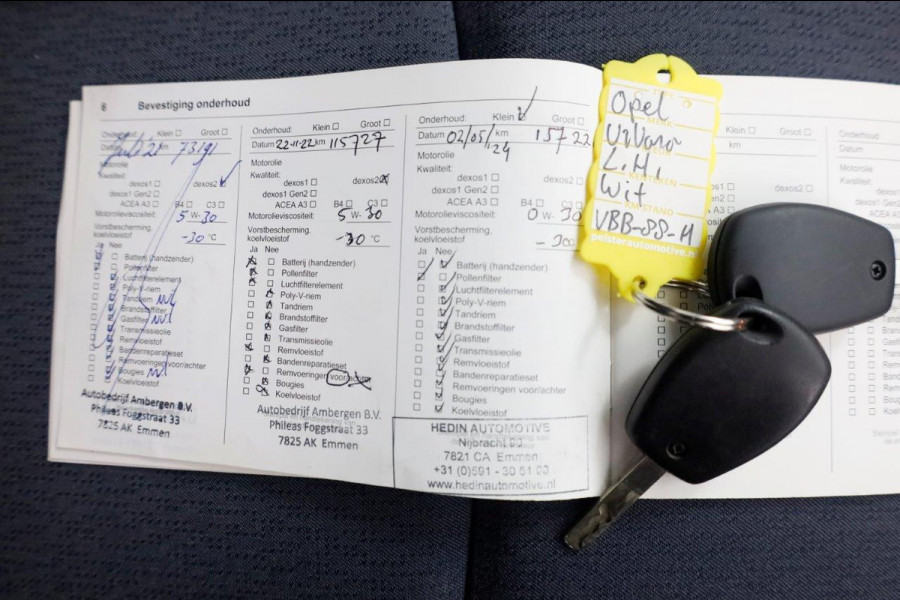 6 Bevestiging onderhoud
Onderhoud: Klein Groot
Datum Juli '21 73191
Motorolie
Kwaliteit:
dexos1 dexos2
dexos1 Gen2
ACEA A3 B4 C3
Motorolieviscositeit: 5 W- 30
Vorstbescherming,
koelvloeistof -30 °C
Ja Nee
Batterij (handzender)
Pollenfilter
Luchtfilterelement
Poly-V-riem
Tandriem
Brandstoffilter
Gasfilter
Transmissieolie
Remvloeistof
Bandenreparatieset
Remvoeringen voor/achter
Bougies
Koelvloeistof
Autobedrijf Ambergen B.V.
Phileas Foggstraat 33
7825 AK Emmen
Onderhoud: Klein Groot
Datum 22-11-22 km 115727
Motorolie
Kwaliteit:
dexos1 dexos2
dexos1 Gen2
ACEA A3 B4 C3
Motorolieviscositeit: 5 W- 30
Vorstbescherming,
koelvloeistof -30 °C
Ja Nee
Batterij (handzender)
Pollenfilter
Luchtfilterelement
Poly-V-riem
Tandriem
Brandstoffilter
Gasfilter
Transmissieolie
Remvloeistof
Bandenreparatieset
Remvoeringen voor/achter
Bougies
Koelvloeistof
Autobedrijf Ambergen B.V.
Phileas Foggstraat 33
7825 AK Emmen
Onderhoud: Klein Groot
Datum 02/05/24 km 15722
Motorolie
Kwaliteit:
dexos1 dexos2
dexos1 Gen2
ACEA A3 B4 C3
Motorolieviscositeit: 0 W- 30
Vorstbescherming,
koelvloeistof - 30
Ja Nee
Batterij (handzender)
Pollenfilter
Luchtfilterelement
Poly-V-riem
Tandriem
Brandstoffilter
Gasfilter
Transmissieolie
Remvloeistof
Bandenreparatieset
Remvoeringen voor/achter
Bougies
Koelvloeistof
HEDIN AUTOMOTIVE
Nijbracht
7821 CA Emmen
+31 (0)591 - 30 51 03
www.hedinautomotive.nl
Opel
Vivaro
L.H.
Wit
KM-STAND
VBB-88-H
pelsterautomotive.nl
Klein Groot
km
dexos2